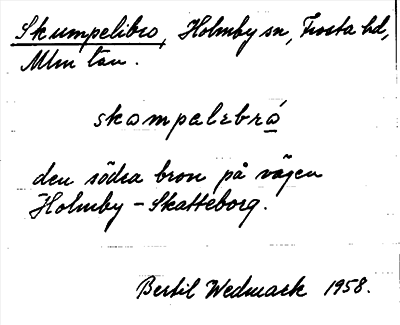 Skumpelibro, Holmby sn, Frosta hd,
Mlm län.
skɵmpalɛbrǻ
den södra bron på vägen
Holmby - Skatteborg.
Bertil Wedmark 1958.